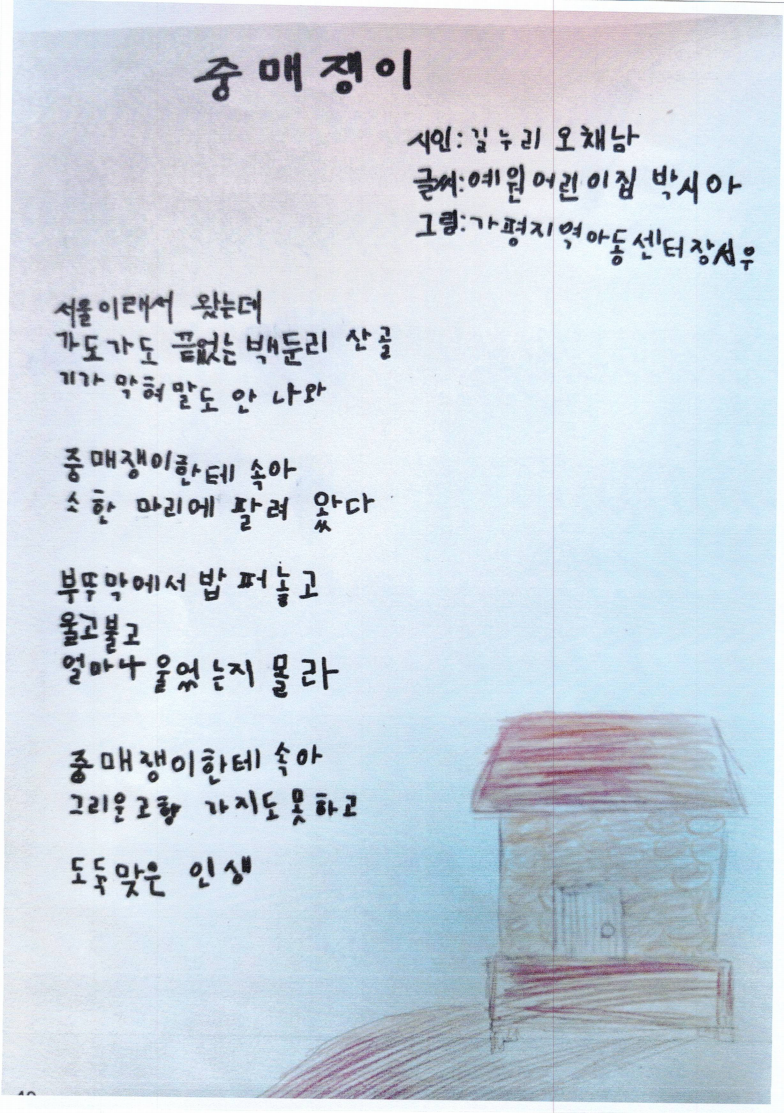 중매쟁이
시인:길누리 오채남
글씨:예원어린이집 박시아
그림:가평지역아동센터 장서우
서울이래서 왔는데
가도가도 끝없는 백둔리 산골
기가 막혀 말도 안 나와
중매쟁이한테 속아
소 한 마리에 팔려 왔다
부뚜막에서 밥 퍼놓고
울고불고
얼마나 울었는지 몰라
중매쟁이한테 속아
그리운 고향 가지도 못하고
도둑맞은 인생